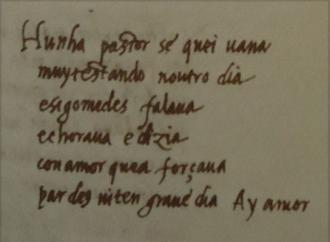 Hunha pastor se quei uana
muytestando noutro dia
esigomedes falaua
echoraua e dizia
con amor quea forçaua
par deg uiten graue dia Ay amor